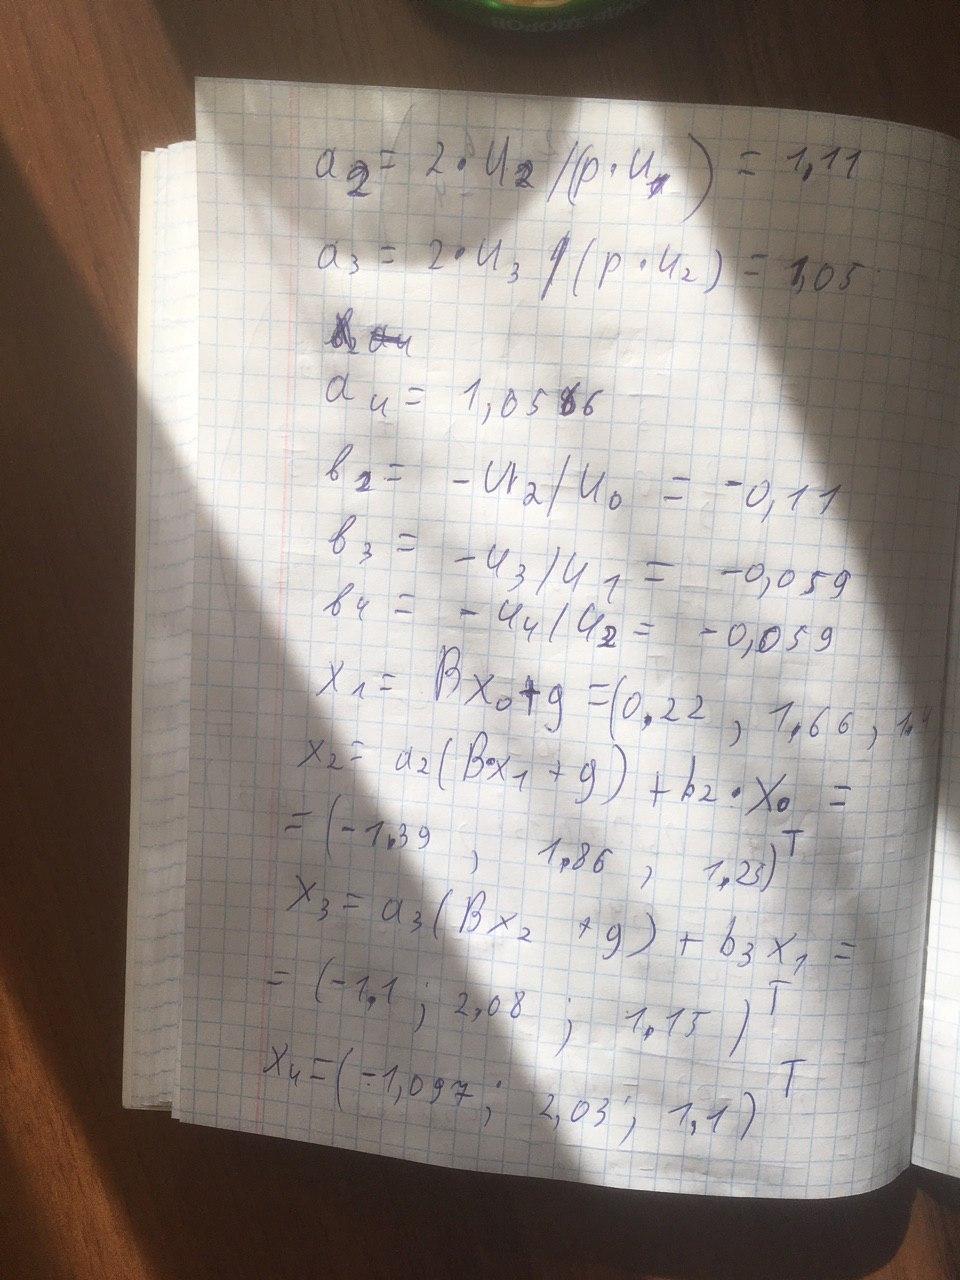 a₂ = 2·u₂ /(p·u₁) = 1,11
a₃ = 2·u₃ /(p·u₂) = 1,05
a₄ = 1,0586
b₂ = -u₂/u₀ = -0,11
b₃ = -u₃/u₁ = -0,059
b₄ = -u₄/u₂ = -0,059
x₁ = Bx₀+g = (0,22 , 1,66 , 1,4
x₂ = a₂(B·x₁ +g) + b₂·x₀ =
= (-1,39 , 1,86 , 1,25)ᵀ
x₃ = a₃(Bx₂ +g) + b₃x₁ =
= (-1,1 ; 2,08 ; 1,15)ᵀ
x₄ = (-1,097 ; 2,03 ; 1,1)ᵀ